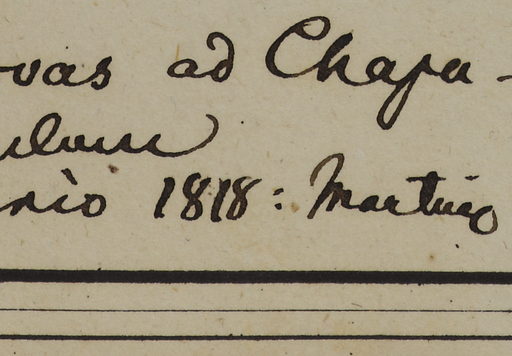 -vas ad Chapa-
nio 1818: Martius